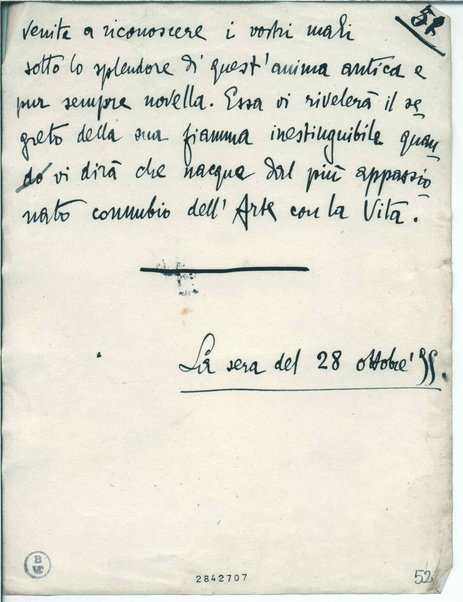 venite a riconoscere i vostri mali
sotto lo splendore di quest'anima antica e
pur sempre novella. Essa vi rivelerà il se-
greto della sua fiamma inestinguibile quan-
do vi dirà che nacque dal più appassio-
nato connubio dell'Arte con la Vita.
La sera del 28 ottobre '95.
2842707
52